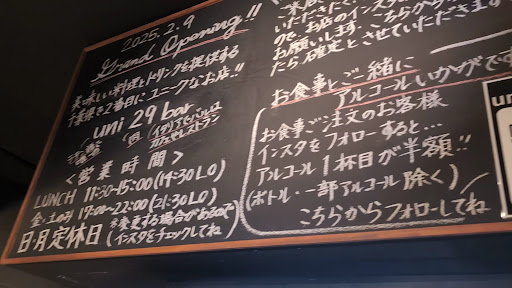 2025.2.9
Grand Opening!!
美味しい料理とドリンクを提供する
千葉県で2番目にユニークなお店!!
uni 29 bar
(イタリアンバル
カフェ&レストラン
<営業時間>
LUNCH 11:30~15:00(14:30LO)
金・土のみ 19:00~22:00(21:30LO)
日・月 定休日
※変更する場合があるので
インスタをチェックしてね
いただきたく
ので、お店のインスタ
お願いします。こちらから
たら確定とさせていただきます
お食事とご一緒に
アルコールいかがです
お食事ご注文のお客様
インスタをフォローすると...
アルコール1杯目が半額!!
(ボトル・一部アルコール除く)
こちらからフォローしてね